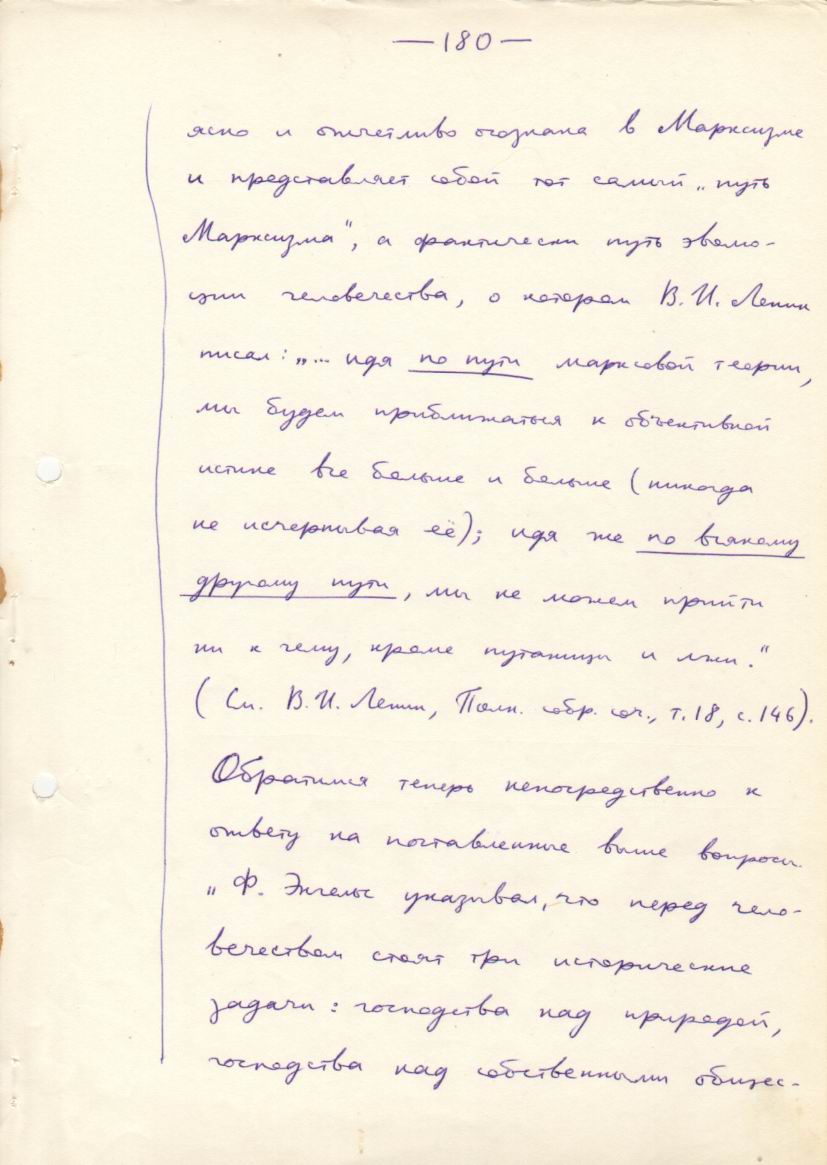 — 180 —
ясно и отчетливо осознана в Марксизме
и представляет собой тот самый „путь
Марксизма", а фактически путь эволю-
ции человечества, о котором В.И. Ленин
писал: „... идя по пути марксовой теории,
мы будем приближаться к объективной
истине все больше и больше (никогда
не исчерпывая её); идя же по всякому
другому пути, мы не можем прийти
ни к чему, кроме путаницы и лжи."
(См. В.И. Ленин, Полн. собр. соч., т.18, с.146).
Обратимся теперь непосредственно к
ответу на поставленные выше вопросы.
„Ф. Энгельс указывал, что перед чело-
вечеством стоят три исторические
задачи: господства над природой,
господства над собственными общес-